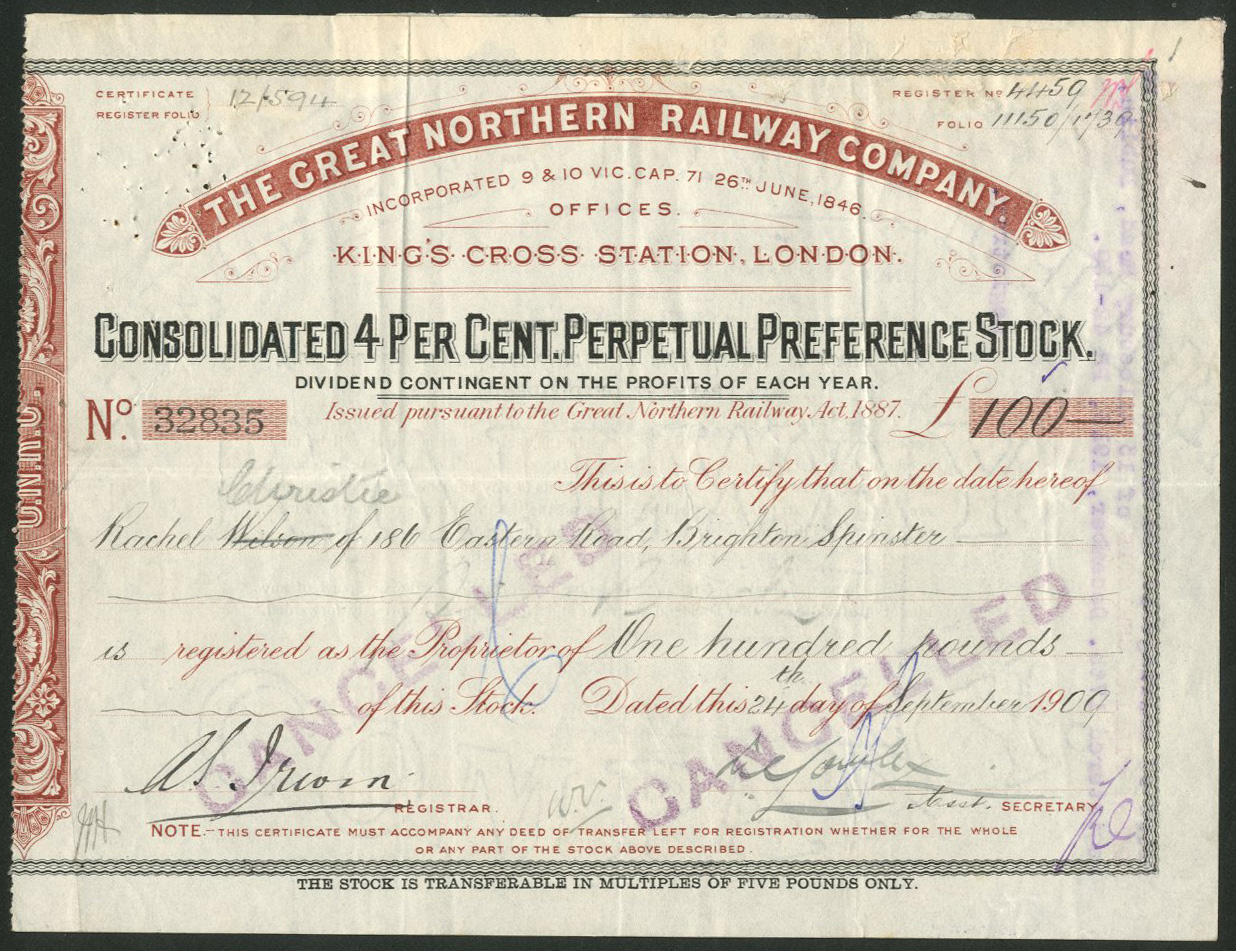 CERTIFICATE
REGISTER FOLIO
12/594
REGISTER Nº 4450
FOLIO 11150/1739
THE GREAT NORTHERN RAILWAY COMPANY.
INCORPORATED 9 & 10 VIC. CAP. 71 26TH JUNE, 1846.
OFFICES.
KING'S CROSS STATION, LONDON.
CONSOLIDATED 4 PER CENT. PERPETUAL PREFERENCE STOCK.
DIVIDEND CONTINGENT ON THE PROFITS OF EACH YEAR.
Issued pursuant to the Great Northern Railway Act, 1887.
Nº. 32835
£100
G.N.R.C.
This is to Certify that on the date hereof
Christie
Rachel Wilson of 186 Eastern Road, Brighton Spinster
is registered as the Proprietor of One hundred pounds
of this Stock. Dated this 24th day of September 1909
CANCELLED
CANCELLED
A S Irwin
REGISTRAR.
Asst. SECRETARY
NOTE.- THIS CERTIFICATE MUST ACCOMPANY ANY DEED OF TRANSFER LEFT FOR REGISTRATION WHETHER FOR THE WHOLE
OR ANY PART OF THE STOCK ABOVE DESCRIBED.
THE STOCK IS TRANSFERABLE IN MULTIPLES OF FIVE POUNDS ONLY.